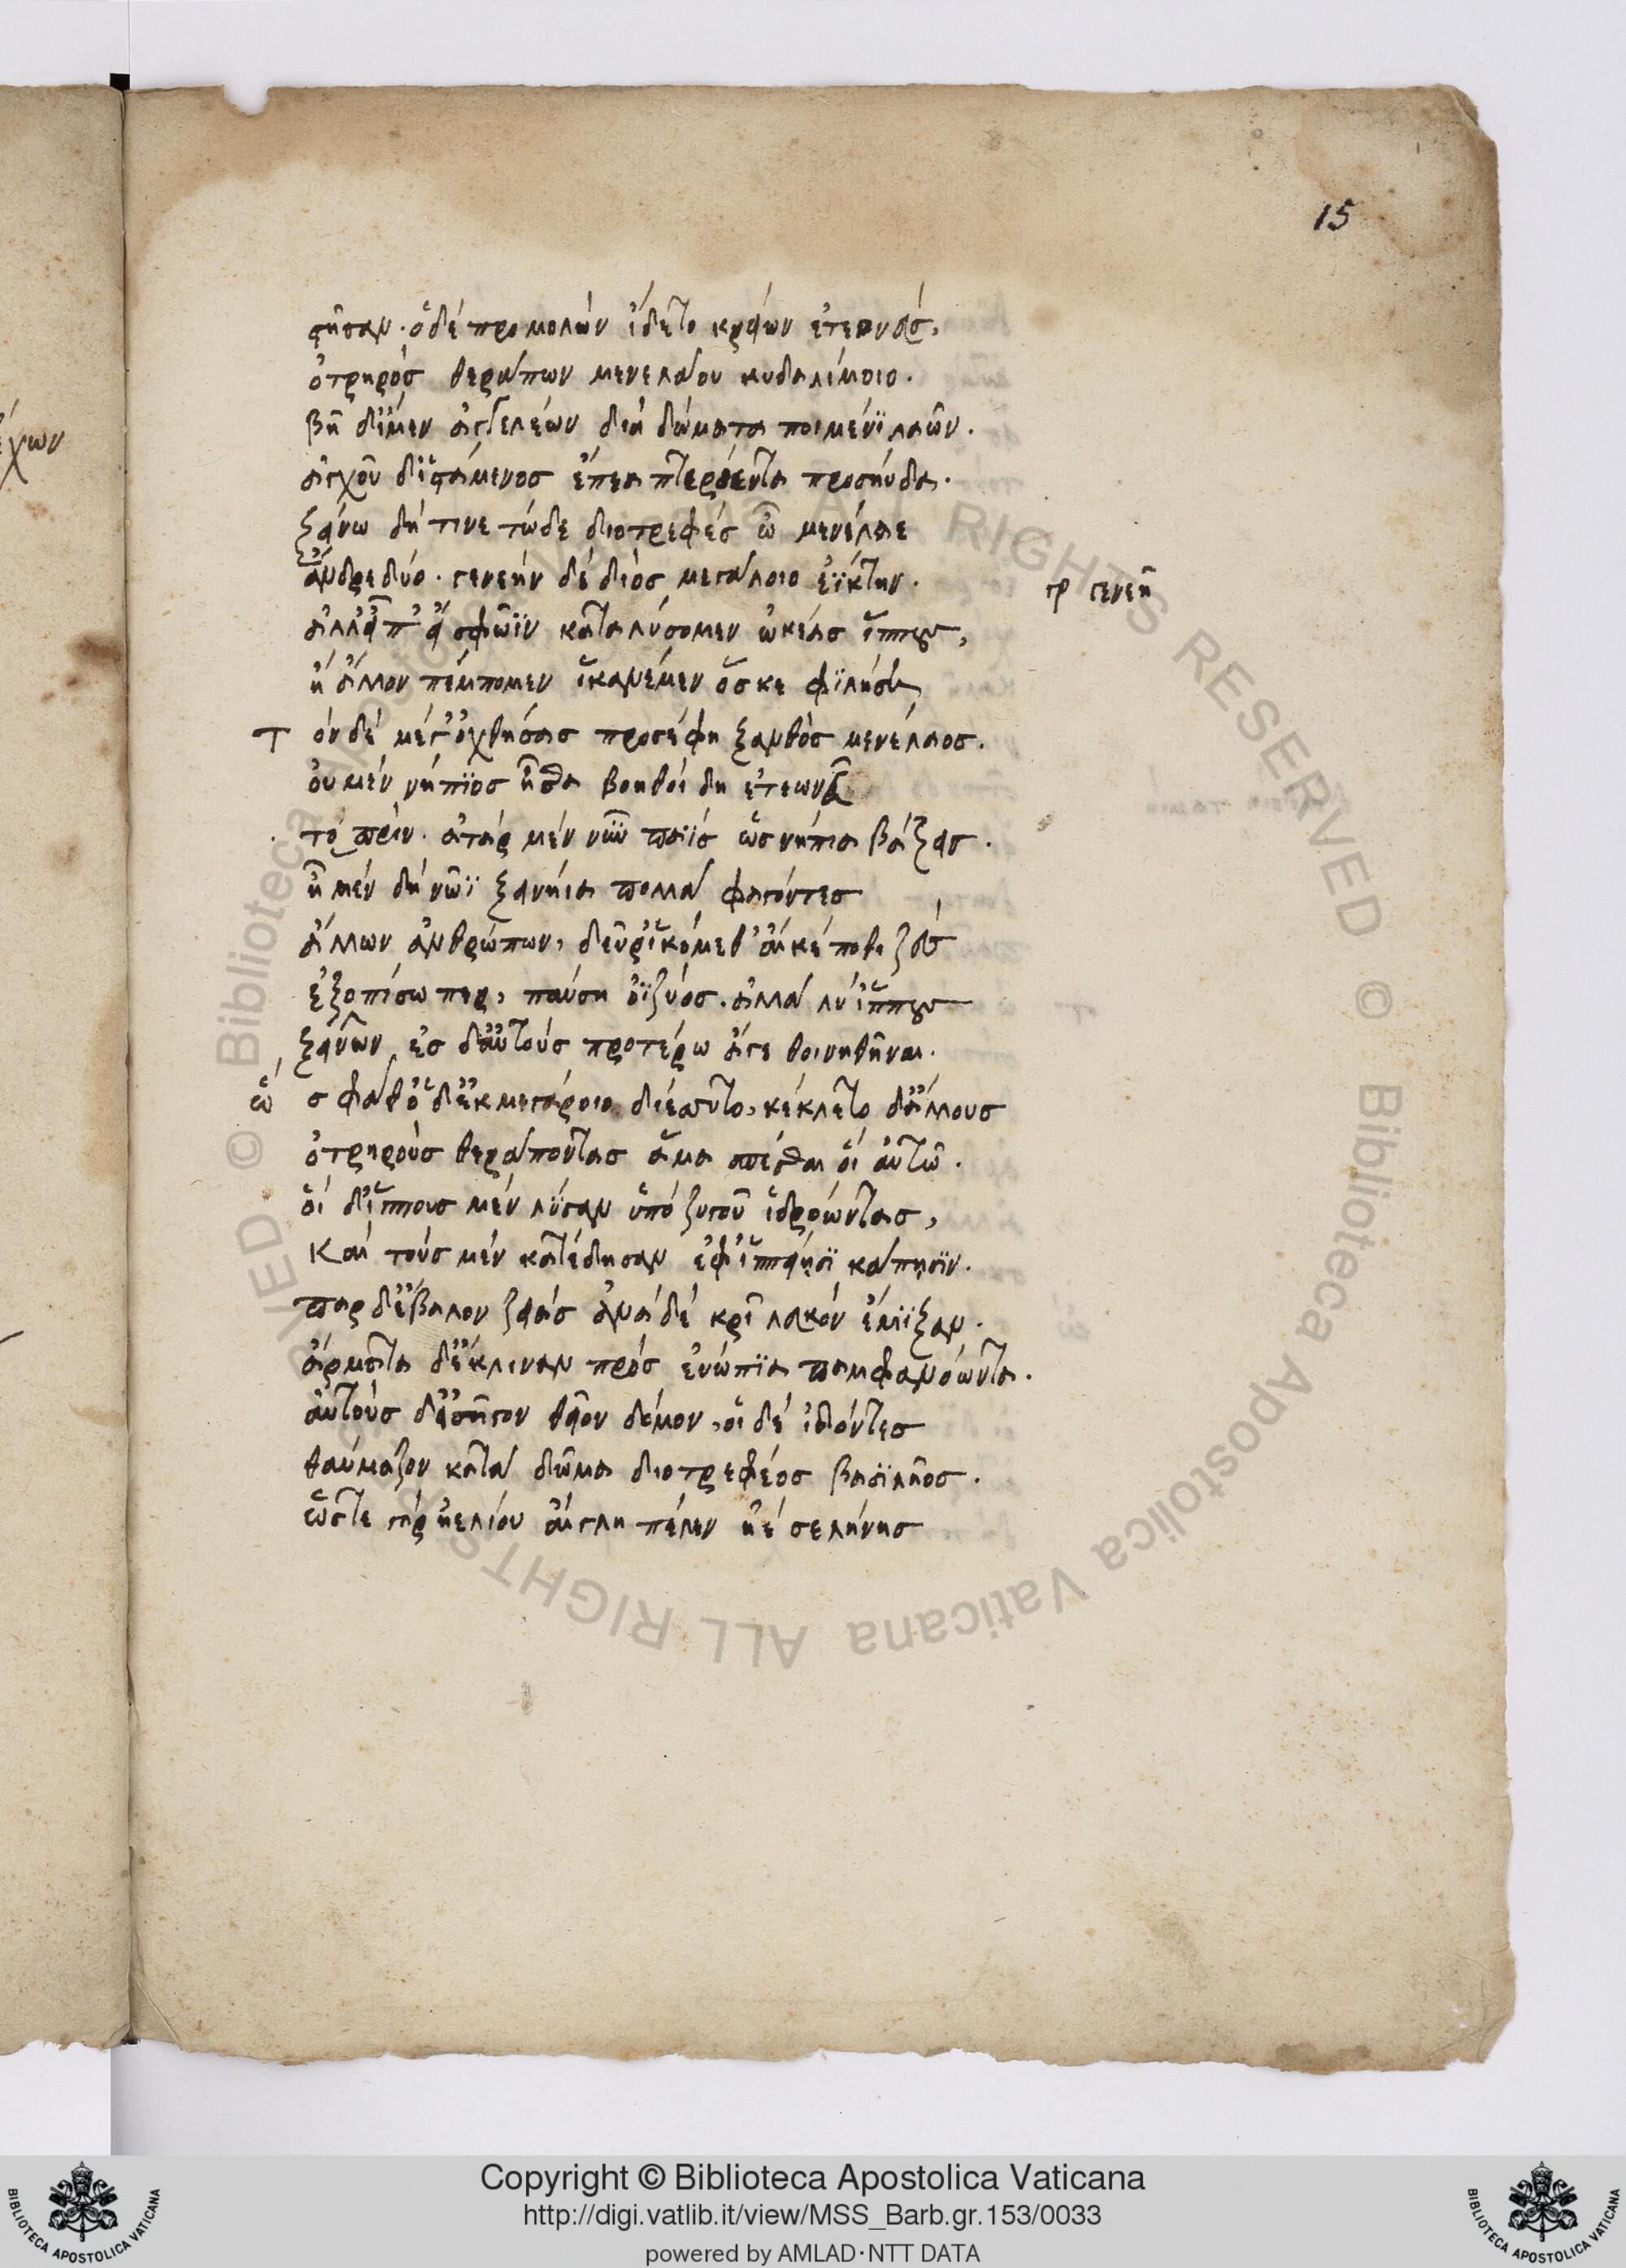 15
έχων
στῆσαν· ὁ δὲ προμολὼν ἴδετο κρείων ἐτεωνεύς,
ὀτρηρὸς θεράπων μενελάου κυδαλίμοιο.
βῆ δ' ἴμεν ἀγγελέων διὰ δώματα ποιμένϊ λαῶν.
ἀγχοῦ δ' ἱστάμενος ἔπεα πτερόεντα προσηύδα.
ξείνω δή τινε τώδε διοτρεφὲς ὦ μενέλαε
ἄνδρε δύο· γενεὴν δὲ διὸς μεγάλοιο ἐΐκτην.
γρ γενεῆ
ἀλλ' εἴπ' εἴ σφῶϊν καταλύσομεν ὠκέας ἵππους,
ἢ ἄλλον πέμπομεν ἱκανέμεν ὅς κε φϊλήση
Τ ὸν δὲ μέγ' ὀχθήσας προσέφη ξανθὸς μενέλαος.
οὐ μὲν νήπϊος ἦσθα βοηθοί δη ἐτεωνεῦ
τὸ πρίν· ἀτὰρ μὲν νῦν παῒς ὣς νήπια βάζεις.
ἦ μὲν δὴ νῶϊ ξεινήϊα πολλὰ φαγόντες
ἄλλων ἀνθρώπων, δεῦρ' ἱκόμεθ' αἴ κέ ποθι ζεὺς
ἐξοπίσω περ, παύση ὀϊζύος. ἀλλὰ λύ' ἵππους
ξείνων, ἐς δ' αὐτοὺς προτέρω ἄγε θοινηθῆναι.
ὣ ς φάθ' ὁ δ' ἐκ μεγάροιο διέσσυτο, κέκλετο δ' ἄλλους
ὀτρηροὺς θεράποντας ἅμα σπέσθαι οἷ αὐτῶ.
οἱ δ' ἵππους μὲν λῦσαν ὑπὸ ζυγοῦ ἱδρώοντας,
Καὶ τοὺς μὲν κατέδησαν ἐφ' ἱππείησϊ κάπησϊν.
παρ δ' ἔβαλον ζειὰς ἀνὰ δὲ κρῖ λευκὸν ἔμϊξαν.
ἅρματα δ' ἔκλιναν πρὸς ἐνώπϊα παμφανόωντα.
αὐτοὺς δ' εἰσῆγον θεῖον δόμον, οἱ δὲ ἰδόντες
θαύμαζον κατὰ δῶμα διοτρεφέος βασϊλῆος.
ὥστε γὰρ ἠελίου αἴγλη πέλεν ἠὲ σελήνης
Copyright © Biblioteca Apostolica Vaticana
http://digi.vatlib.it/view/MSS_Barb.gr.153/0033
powered by AMLAD·NTT DATA